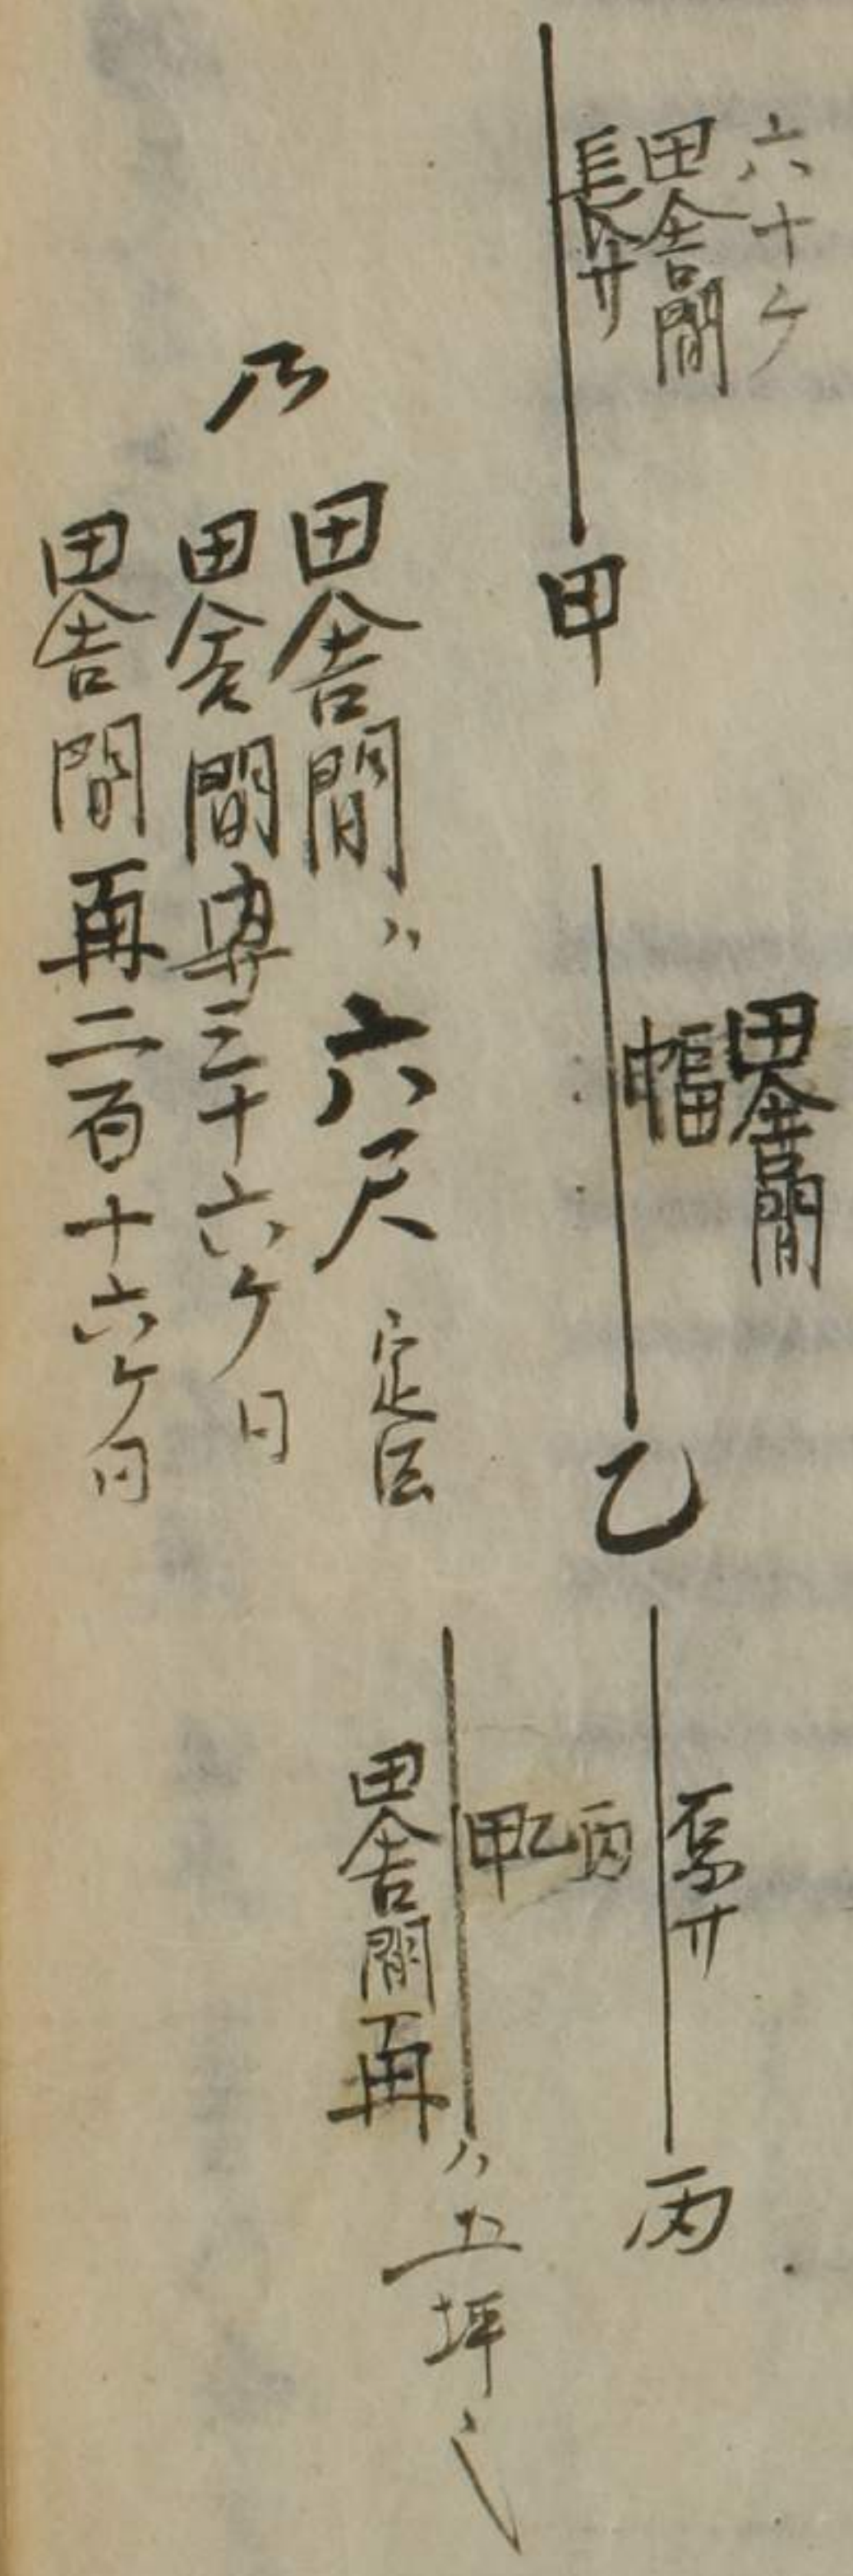 六十ケ
田舎間
長サ
甲
田舎間
幅
乙
深サ
丙
甲乙丙
田舎間再
ハ土坪也
乃
田舎間ハ六尺 定法
田舎間 三十六ケ 同
田舎間再二百十六ケ 同